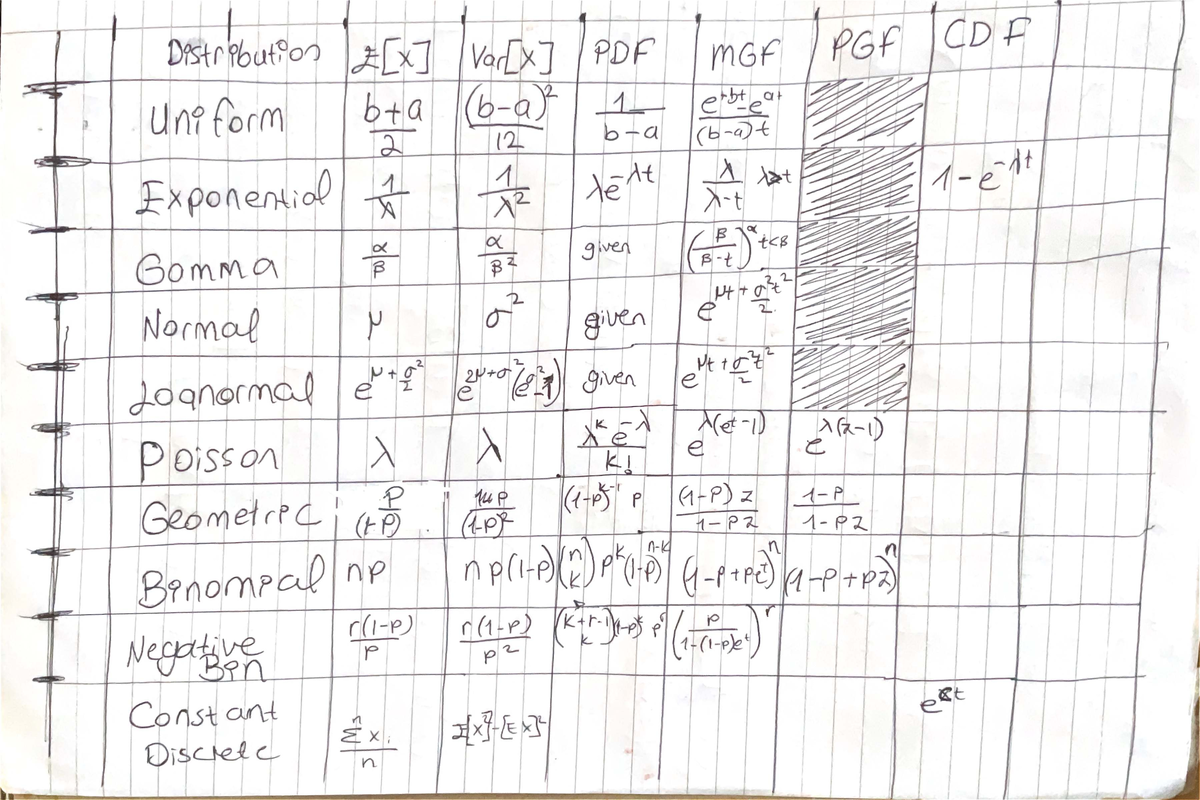 Distribution E[x] Var[x] PDF MGF PGF CDF
Uniform (b+a)/2 (b-a)²/12 1/(b-a) (e^(bt)-e^(at))/((b-a)t)
Exponential 1/λ 1/λ² λe^(-λt) λ/(λ-t) λ>t 1-e^(-λt)
Gamma α/β α/β² given (β/(β-t))^α t<β
Normal μ σ² given e^(μt+σ²t²/2)
Lognormal e^(μ+σ²/2) e^(2μ+σ²)(e^(σ²)-1) given e^(μt+σ²t²/2)
Poisson λ λ λ^k e^(-λ)/k! e^(λ(e^t-1)) e^(λ(z-1))
Geometric p/(1-p) p/(1-p)² (1-p)^(k-1) p (1-p)z/(1-pz) (1-p)/(1-pz)
Binomial np np(1-p) (n k) p^k (1-p)^(n-k) (1-p+pe^t)^n (1-p+pz)^n
Negative r(1-p)/p r(1-p)/p² (k+r-1 k)(1-p)^k p^r (p/(1-(1-p)e^t))^r
Bin
Constant
Discrete Σ^n x_i/n E[x²]-[Ex]²